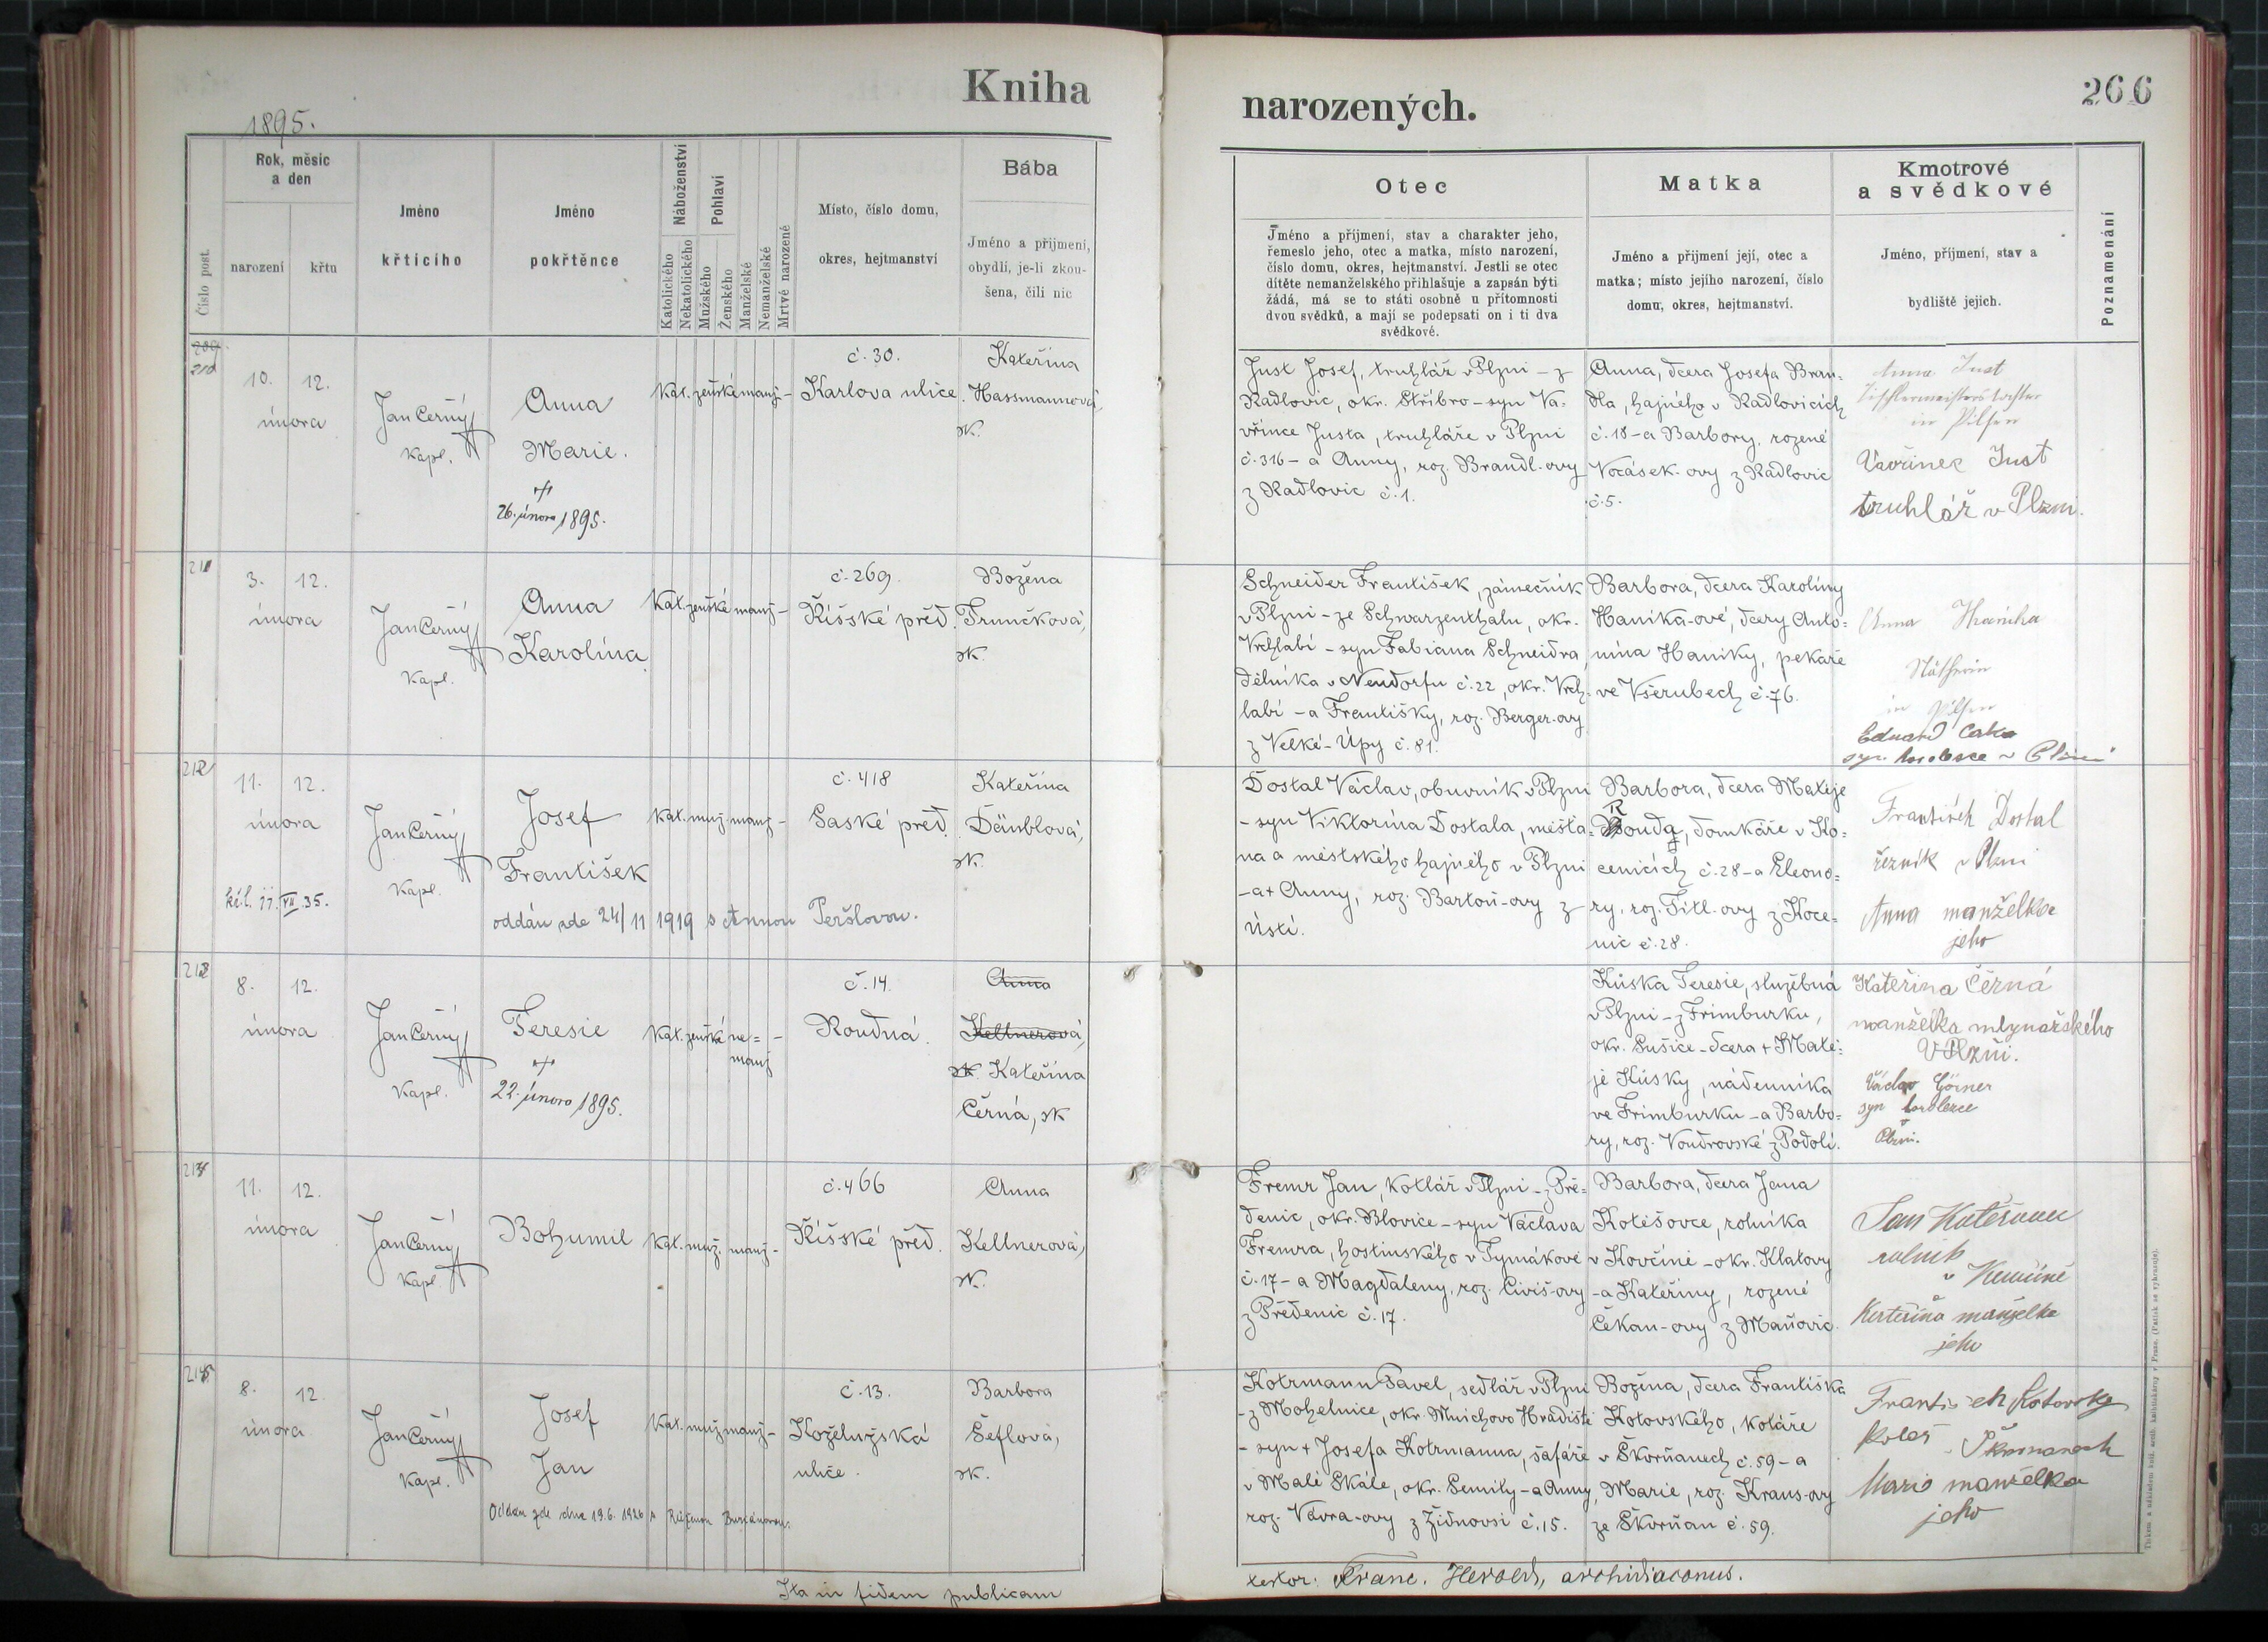 Kniha
narozených.
266
1895.
Číslo post.
Rok, měsíc
a den
narození
křtu
Jméno
křtícího
Jméno
pokřtěnce
Náboženství
Katolického
Nekatolického
Pohlaví
Mužského
Ženského
Manželské
Nemanželské
Mrtvě narozené
Místo, číslo domu,
okres, hejtmanství
Bába
Jméno a přijmení,
obydlí, je-li zkou-
šena, čili nic
Otec
Jméno a příjmení, stav a charakter jeho,
řemeslo jeho, otec a matka, místo narození,
číslo domu, okres, hejtmanství. Jestli se otec
dítěte nemanželského přihlašuje a zapsán býti
žádá, má se to státi osobně u přítomnosti
dvou svědků, a mají se podepsati on i ti dva
svědkové.
Matka
Jméno a přijmení její, otec a
matka; místo jejího narození, číslo
domu, okres, hejtmanství.
Kmotrové
a svědkové
Jméno, příjmení, stav a
bydliště jejich.
Poznamenání
210
10. 12.
února
Jan Černý
kapl.
Anna
Marie.
26. února 1895.
kat. ženské manž. -
č. 30.
Karlova ulice.
Kateřina
Hassmannová,
zk.
Just Josef, truhlář v Plzni - z
Radlovic, okr. Stříbro - syn Va-
vřince Justa, truhláře v Plzni
č. 316 - a Anny, roz. Brandl-ovy
z Radlovic č. 1.
Anna, dcera Josefa Bran-
dla, hajného v Radlovicích
č. 18 - a Barbory, rozené
Vocásek-ovy z Radlovic
č. 5.
Anna Just
Tischlermeisterstochter
in Pilsen
Vavřinec Just
truhlář v Plzni.
211
3. 12.
února
Jan Černý
kapl.
Anna
Karolina
kat. ženské manž. -
č. 269.
Říšské před.
Božena
Trunčková,
zk.
Schneider František, zámečník
v Plzni - ze Schwarzenthalu, okr.
Vrchlabí - syn Fabiana Schneidra,
dělníka v Neudorfu č. 22, okr. Vrch-
labí - a Františky, roz. Berger-ovy
z Velké-Úpy č. 81.
Barbora, dcera Karoliny
Hanika-ové, dcery Anto-
nína Haniky, pekaře
ve Všerubech č. 76.
Anna
Nätherin
in Pilsen
Eduard
212
11. 12.
února
Jan Černý
kapl.
Josef
František
kat. muž. manž. -
č. 418
Saské před.
Kateřina
Däublová,
zk.
oddán zde 24/11 1919 s Annou Peršlovou.
Dostal Václav, obuvník v Plzni
- syn Viktorína Dostala, měšťa-
na a městského hajného v Plzni
- a + Anny, roz. Bartoň-ovy z
Ústí.
Barbora, dcera Matěje
Roudy, domkáře v Ko-
cenicích č. 28 - a Eleono-
ry, roz. Fitl-ovy z Koce-
nic č. 28.
František Dostal
řezník v Plzni
Anna manželka
jeho
213
8. 12.
února
Jan Černý
kapl.
Teresie
22. února 1895.
kat. ženské ne- -
manž
č. 14.
Roudná.
Anna
Kellnerová,
zk. Kateřina
Černá, zk
Kúska Teresie, služebná
v Plzni - z Frimburku,
okr. Sušice - dcera + Matě-
je Kúsky, nádenníka
ve Frimburku - a Barbo-
ry, roz. Voudrovské z Podolí.
Kateřina Černá
manželka mlynařského
V Plzni.
Václav Görner
syn
Plzni.
214
11. 12.
února
Jan Černý
kapl.
Bohumil
kat. muž. manž. -
č. 466
Říšské před.
Anna
Kellnerová,
zk.
Fremr Jan, kotlář v Plzni - z Pře-
denic, okr. Blovice - syn Václava
Fremra, hostinského v Tymákově
č. 17 - a Magdaleny, roz. Civiš-ovy
z Předenic č. 17.
Barbora, dcera Jana
Kotěšovce, rolníka
v Kovčíně - okr. Klatovy
- a Kateřiny, rozené
Čekan-ovy z Maňovic.
Jan
rolník
v
Kateřina manželka
jeho
215
8. 12.
února
Jan Černý
kapl.
Josef
Jan
kat. muž. manž. -
č. 13.
Koželužská
ulice.
Barbora
Šeflová,
zk.
Oddán zde dne 19.6. 1926 s Růženou
Kotrmann Pavel, sedlář v Plzni
- z Mohelnice, okr. Mnichovo Hradiště
- syn + Josefa Kotrmanna, šafáře
v Malé Skále, okr. Semily - a Anny,
roz. Vávra-ovy z Židňovsi č. 15.
Božena, dcera Františka
Kotovského, koláře
v Škvrňanech č. 59 - a
Marie, roz. Kraus-ovy
ze Škvrňan č. 59.
František Kotovský
kolář v
Marie manželka
jeho
Ita in fidem publicam
testor: Franc. Herold, archidiaconus.